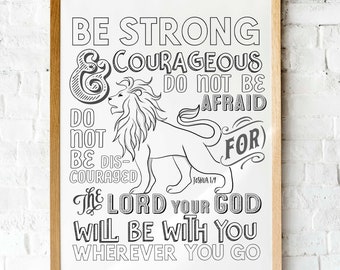 BE STRONG
& COURAGEOUS
DO NOT BE
AFRAID
DO
NOT
BE DIS-
COURAGED
FOR
JOSHUA 1:9
The LORD YOUR GOD
WILL BE WITH YOU
WHEREVER YOU GO